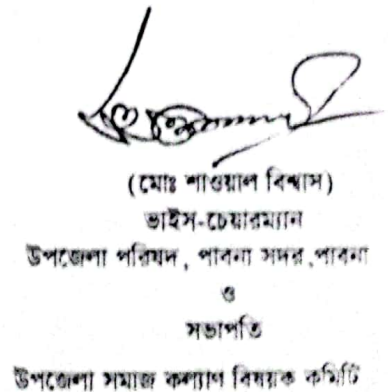 (মোঃ শাওয়াল বিশ্বাস)
ভাইস-চেয়ারম্যান
উপজেলা পরিষদ, পাবনা সদর,পাবনা
ও
সভাপতি
উপজেলা সমাজ কল্যাণ বিষয়ক কমিটি